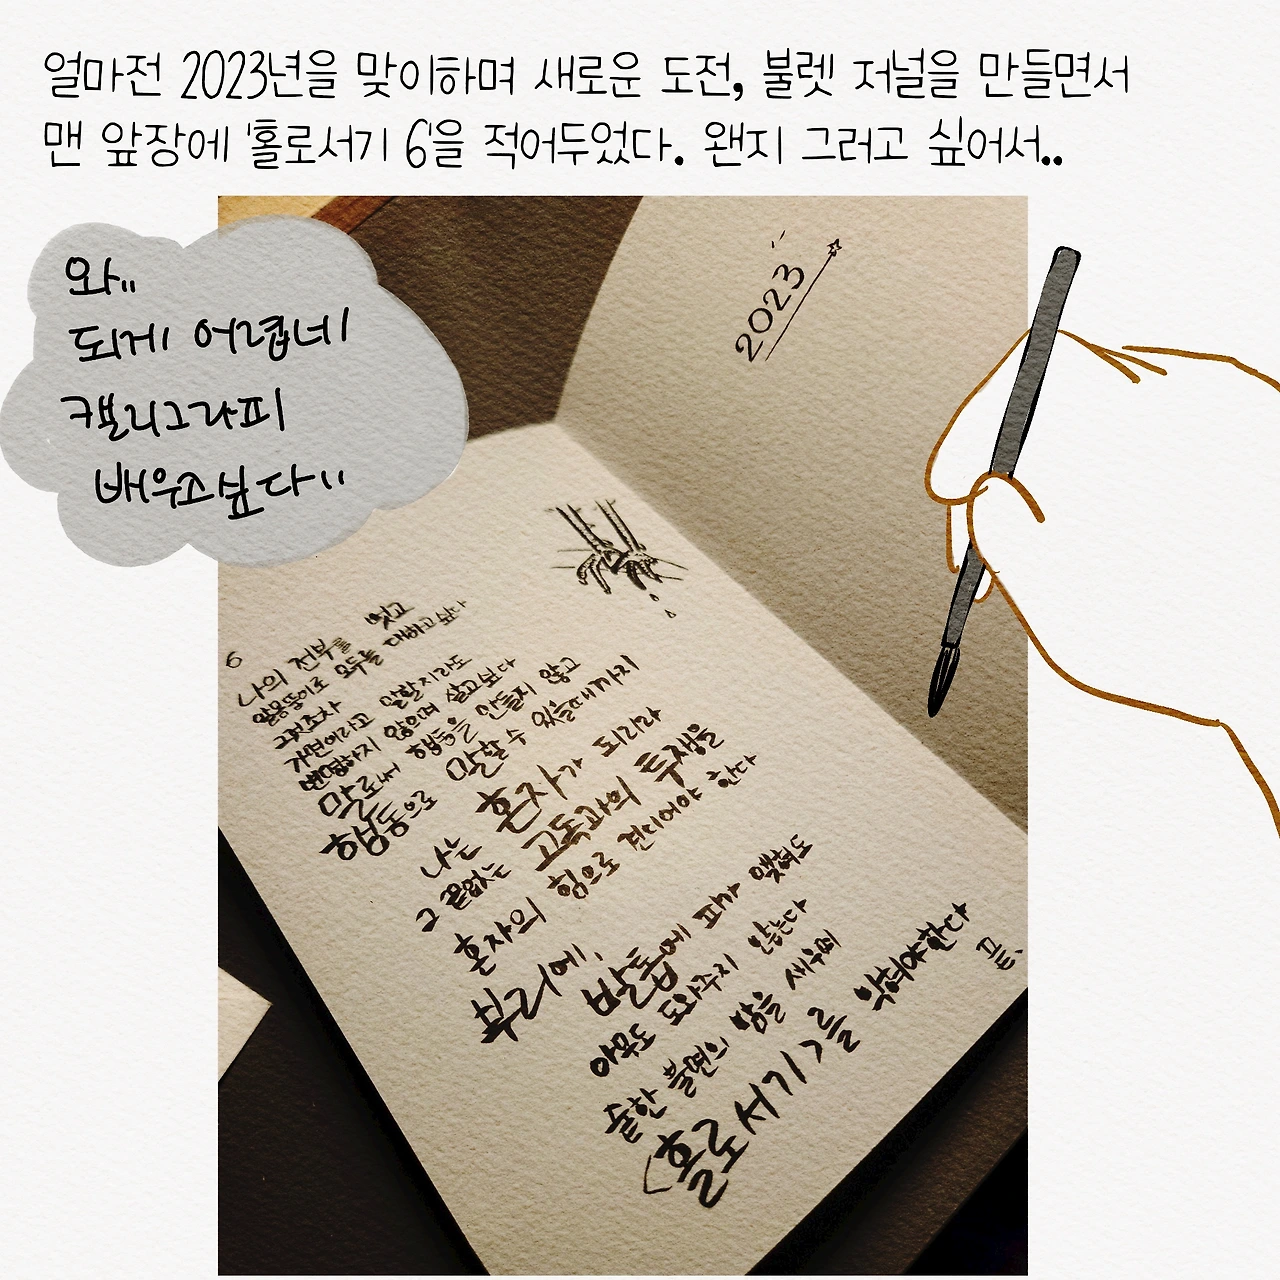 얼마전 2023년을 맞이하며 새로운 도전, 불렛 저널을 만들면서
맨 앞장에 '홀로서기 6'을 적어두었다. 왠지 그러고 싶어서..
와..
되게 어렵네
캘리그라피
배우고싶다..
2023
6
나의 전부를 벗고
알몸뚱이로 모두를 대하고 싶다
그것조차
가면이라고 말할지라도
변명하지 않으며 살고싶다
말로써 행동을 만들지 않고
행동으로 말할 수 있을때까지
나는 혼자가 되리라
그 끝없는 고독과의 투쟁을
혼자의 힘으로 견디어야 한다
부리에, 발톱에 피가 맺혀도
아무도 도와주지 않는다
숱한 불면의 밤을 새우며
<홀로서기>를 익혀야한다